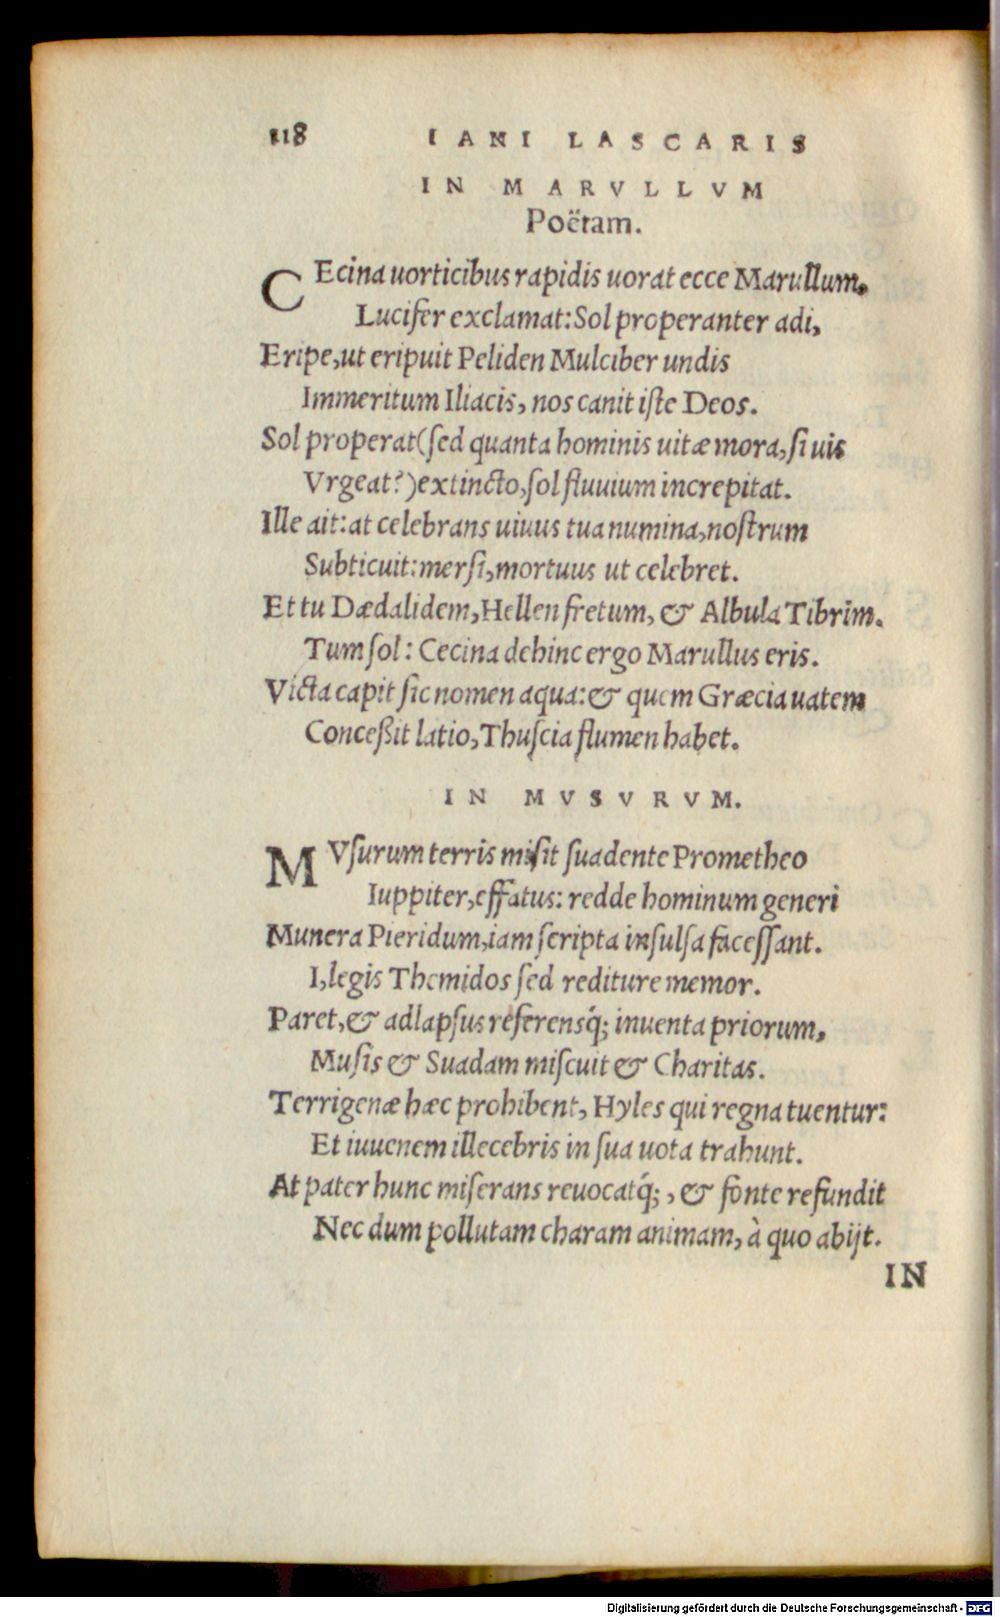 118 IANI LASCARIS
IN MARVLLVM
Poëtam.
CEcina uorticibus rapidis uorat ecce Marullum,
Lucifer exclamat: Sol properanter adi,
Eripe, ut eripuit Peliden Mulciber undis
Immeritum Iliacis, nos canit iſte Deos.
Sol properat (ſed quanta hominis uitæ mora, ſi uis
Vrgeat?) extincto, ſol fluuium increpitat.
Ille ait: at celebrans uiuus tua numina, noſtrum
Subticuit: merſi, mortuus ut celebret.
Et tu Dædalidem, Hellen fretum, & Albula Tibrim.
Tum ſol: Cecina dehinc ergo Marullus eris.
Victa capit ſic nomen aqua: & quem Græcia uatem
Conceßit latio, Thuſcia flumen habet.
IN MVSVRVM.
MVſurum terris miſit ſuadente Prometheo
Iuppiter, effatus: redde hominum generi
Munera Pieridum, iam ſcripta inſulſa faceſſant.
I, legis Themidos ſed rediture memor.
Paret, & adlapſus referensq́; inuenta priorum,
Muſis & Suadam miſcuit & Charitas.
Terrigenæ hæc prohibent, Hyles qui regna tuentur:
Et iuuenem illecebris in ſua uota trahunt.
At pater hunc miſerans reuocatq́;, & fonte refundit
Nec dum pollutam charam animam, à quo abijt.
IN
Digitalisierung gefördert durch die Deutsche Forschungsgemeinschaft - DFG